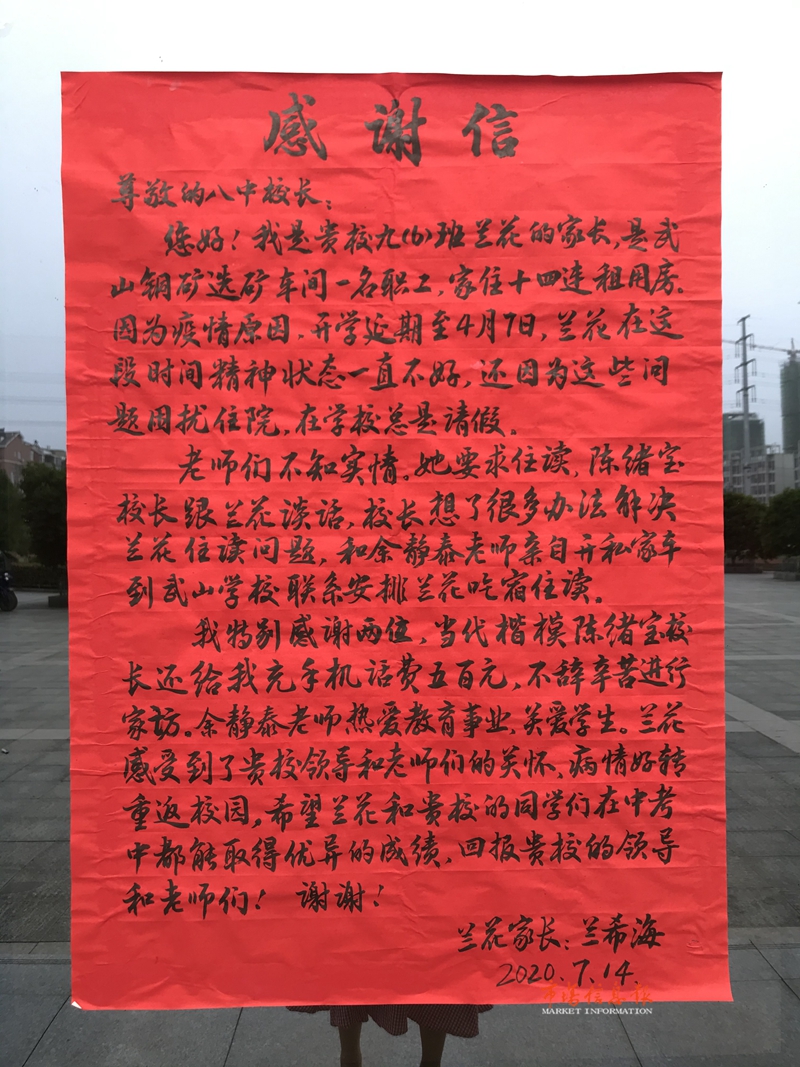 感谢信
尊敬的八中校长：
您好！我是贵校九(6)班兰花的家长，是武
山铜矿选矿车间一名职工，家住十四连租用房。
因为疫情原因，开学延期至4月7日，兰花在这
段时间精神状态一直不好，还因为这些问
题困扰住院，在学校总是请假。
老师们不知实情。她要求住读，陈绪宝
校长跟兰花谈话，校长想了很多办法解决
兰花住读问题，和余静泰老师亲自开私家车
到武山学校联系安排兰花吃宿住读。
我特别感谢两位，当代楷模陈绪宝校
长还给我充手机话费五百元，不辞辛苦进行
家访。余静泰老师热爱教育事业，关爱学生。兰花
感受到了贵校领导和老师们的关怀，病情好转
重返校园。希望兰花和贵校的同学们在中考
中都能取得优异的成绩，回报贵校的领导
和老师们！谢谢！
兰花家长：兰希海
2020.7.14.
市场信息报
MARKET INFORMATION